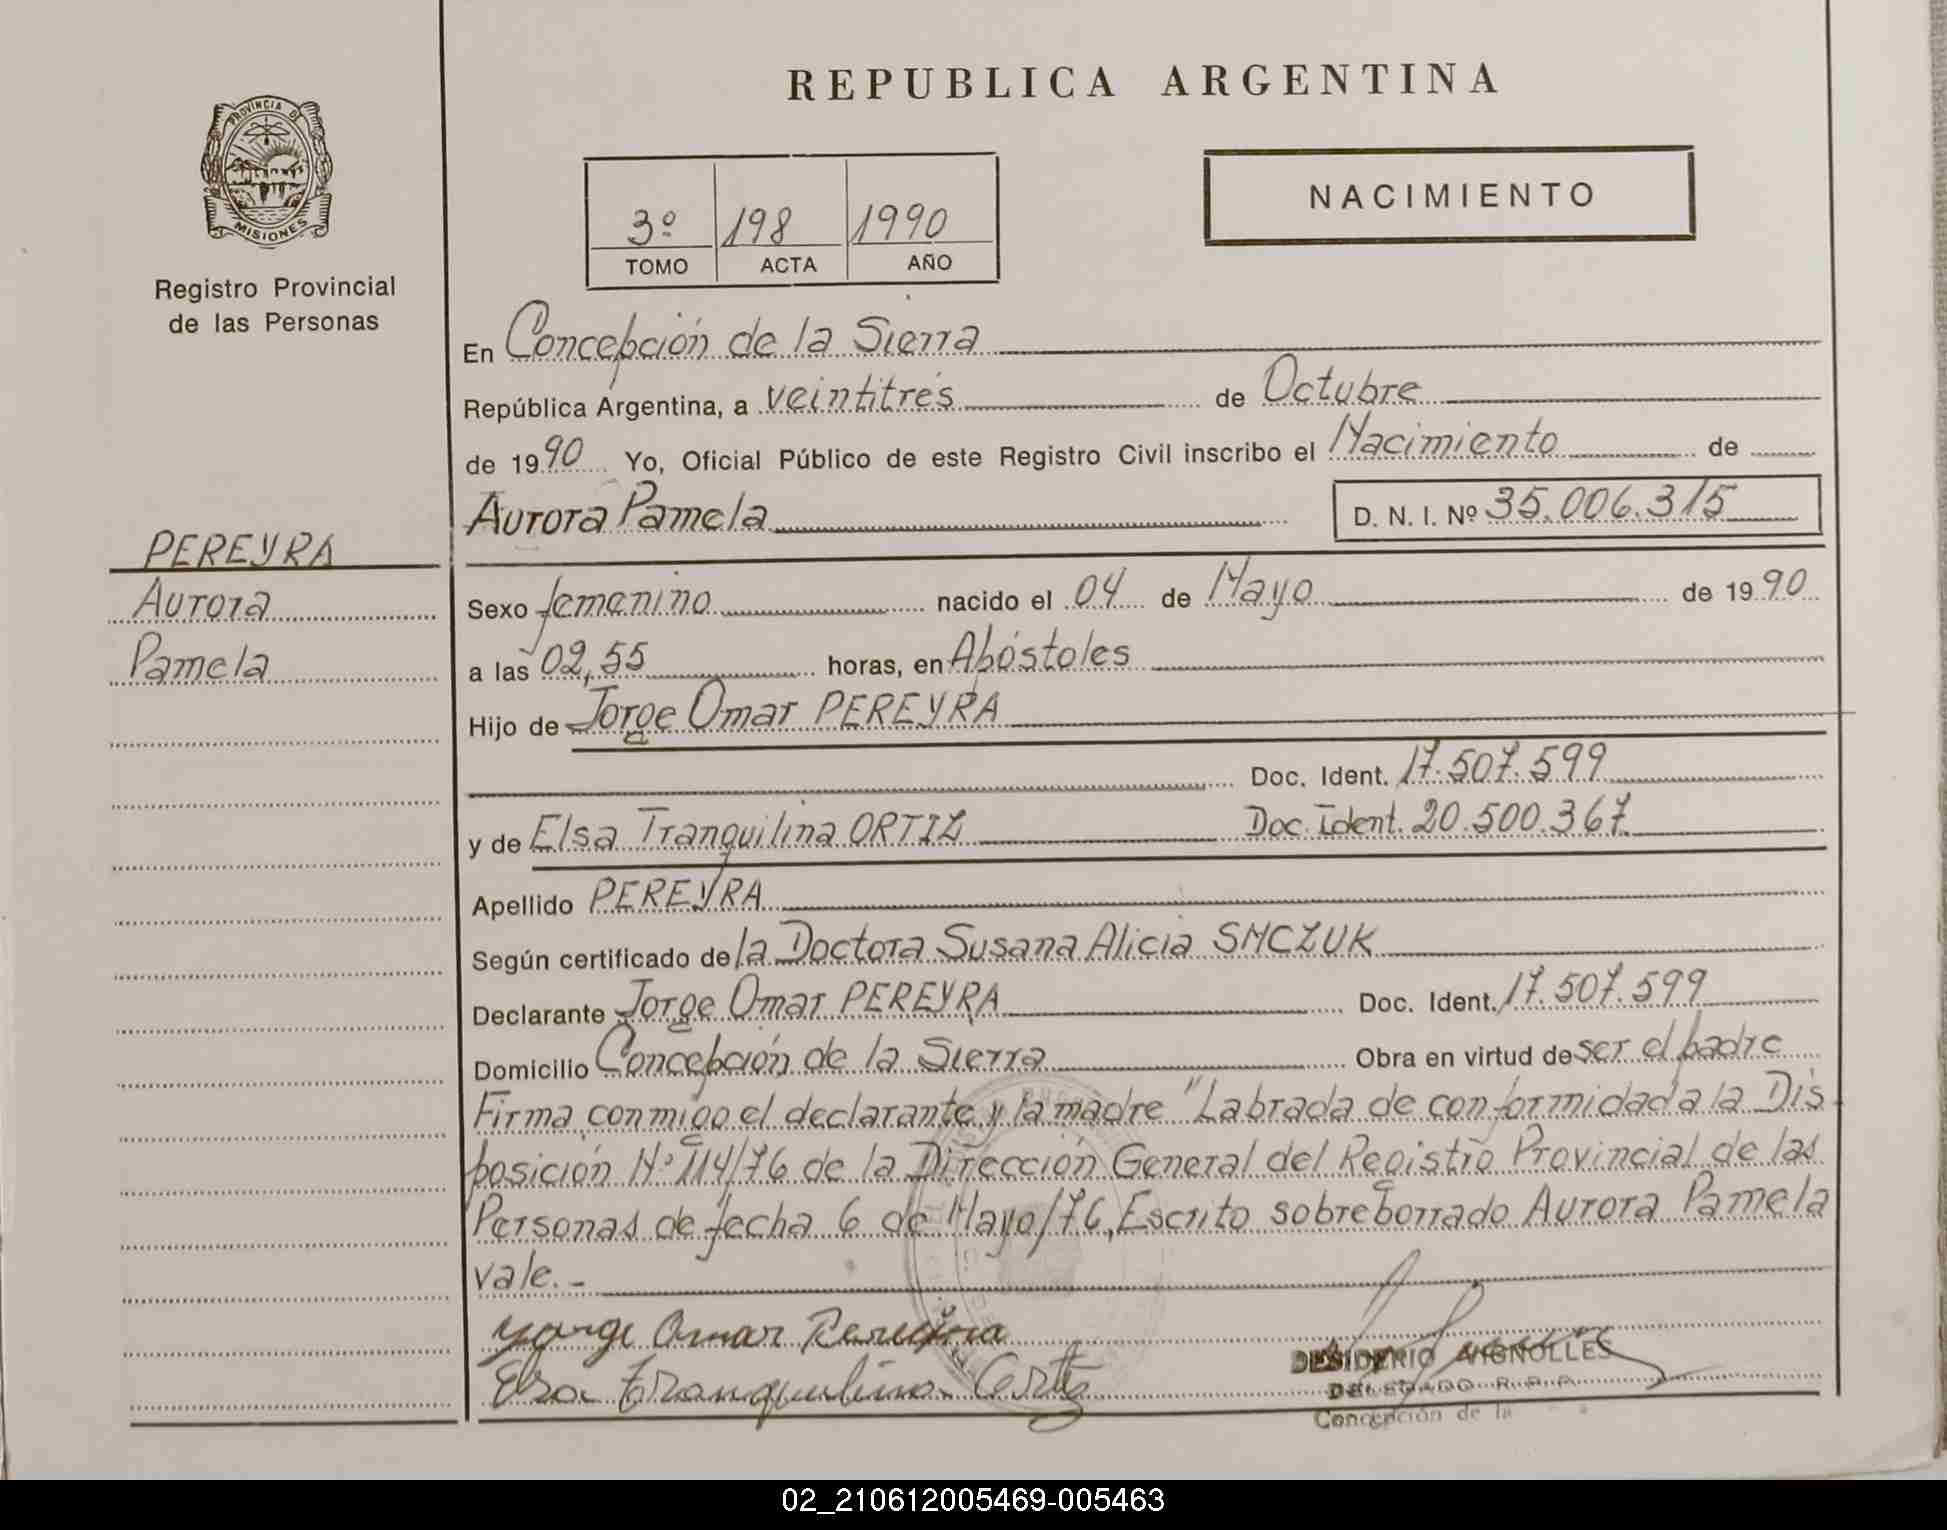 REPUBLICA ARGENTINA
PROVINCIA DE
MISIONES
Registro Provincial
de las Personas
3º 198 1990
TOMO ACTA AÑO
NACIMIENTO
En Concepción de la Sierra
República Argentina, a veintitrés de Octubre
de 1990 Yo, Oficial Público de este Registro Civil inscribo el Nacimiento de
Aurora Pamela D. N. I. Nº 35.006.315
PEREYRA
Aurora
Pamela
Sexo femenino nacido el 04 de Mayo de 1990
a las 02,55 horas, en Apóstoles
Hijo de Jorge Omar PEREYRA
Doc. Ident. 17.507.599
y de Elsa Tranquilina ORTIZ Doc. Ident. 20.500.367
Apellido PEREYRA
Según certificado de la Doctora Susana Alicia SMCZUK
Declarante Jorge Omar PEREYRA Doc. Ident. 17.507.599
Domicilio Concepción de la Sierra Obra en virtud de ser el padre
Firma conmigo el declarante y la madre "Labrada de conformidad a la Dis-
posición Nº 114/76 de la Dirección General del Registro Provincial de las
Personas de fecha 6 de Mayo/76, Escrito sobreborrado Aurora Pamela
vale.-
Jorge Omar Pereyra
Elsa Tranquilina Ortiz
DESIDERIO VIGNOLLES
DELEGADO R. P. P.
Concepción de la
02_210612005469-005463